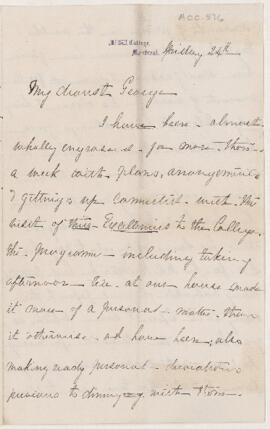 ACC-576
McGill College,
Montreal.
Friday 24th
My dearest George
I have been almost
wholly engrossed for more than
a week with plans, arrangements
& gettings up connected with the
visit of their Excellencies to the College.
The programme including taking
afternoon tea at our house made
it more of a personal matter than
it otherwise had have been, also
making ready personal decorations
previous to dining with them.